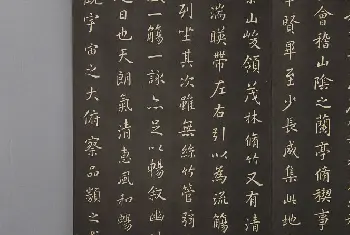 會稽山陰之蘭亭脩稧事
賢畢至少長咸集此地
崇山峻領茂林脩竹又有清
湍暎帶左右引以為流觴
列坐其次雖無絲竹管弦
一觴一詠亦足以暢敘幽
是日也天朗氣清惠風和暢
宇宙之大俯察品類之